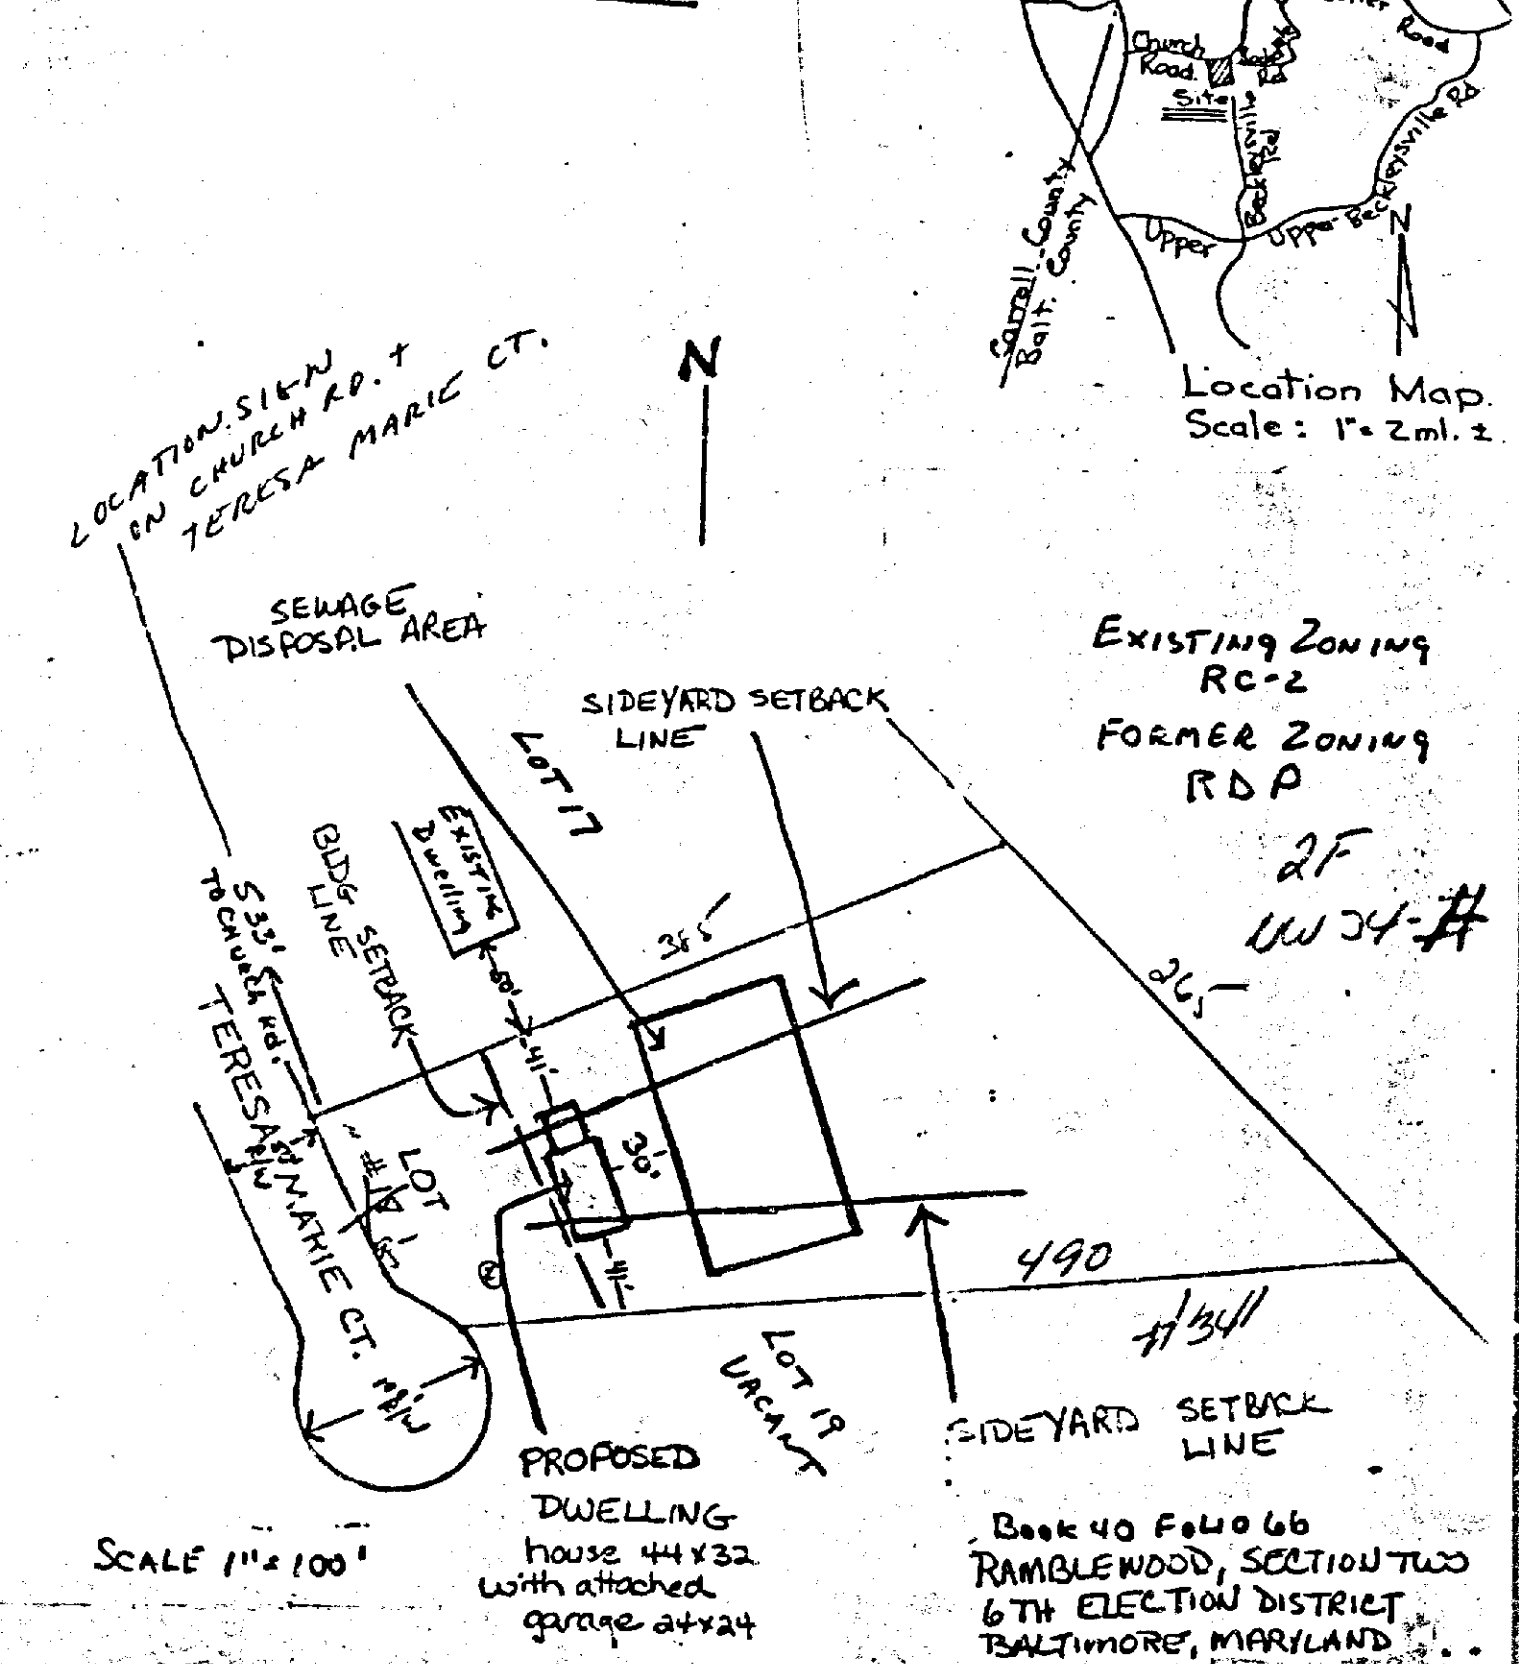 Road
Church
Road.
Rd
Site
Beckleysville
Rd
Beckleysville Rd
Upper
Upper
Carroll County
Balt. County
N
Location Map.
Scale: 1"= 2 mi. ±
N
LOCATION SIGN
ON CHURCH RD. +
TERESA MARIE CT.
SEWAGE
DISPOSAL AREA
SIDEYARD SETBACK
LINE
LOT 17
EXISTING ZONING
RC-2
FORMER ZONING
RDP
2F
EXISTING
Dwelling
BLDG SETBACK
LINE
533'
TO CHURCH Rd.
385
265
60'
41'
TERESA MARIE CT.
R/W
LOT
#18
30'
41'
490
R/W
LOT 19
VACANT
SIDEYARD SETBACK
LINE
PROPOSED
DWELLING
house 44x32
with attached
garage 24x24
SCALE 1"=100'
Book 40 Folio 66
RAMBLEWOOD, SECTION TWO
6TH ELECTION DISTRICT
BALTIMORE, MARYLAND